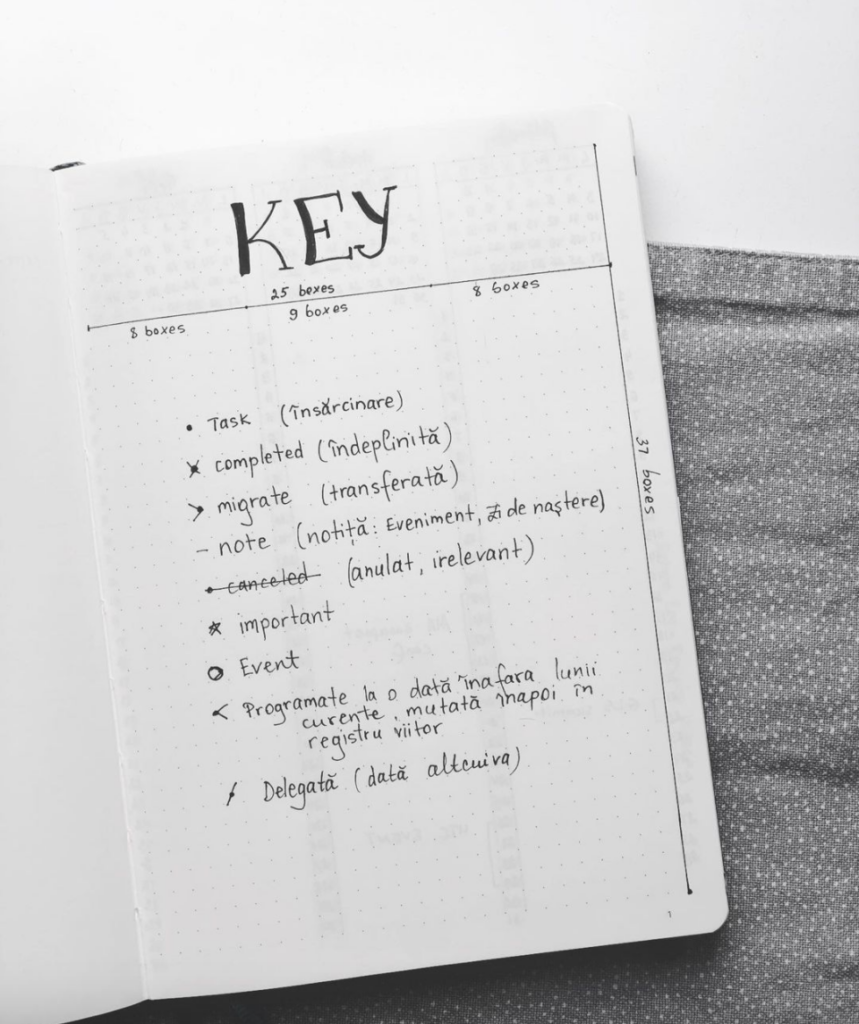 KEY
25 boxes
8 boxes
9 boxes
8 boxes
37 boxes
• Task (însărcinare)
x completed (îndeplinită)
> migrate (transferată)
– note (notiță: Eveniment, zi de naștere)
• canceled (anulat, irelevant)
important
Event
< Programate la o dată înafara lunii
curente, mutată înapoi în
registru viitor
/ Delegată (dată altcuiva)
1